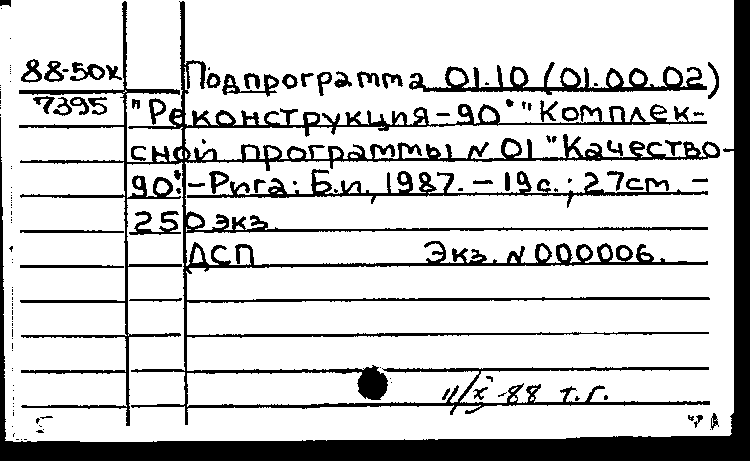 88-50к Подпрограмма 01.10 (01.00.02)
7395 "Реконструкция-90" "Комплек-
сной программы N 01 "Качество-
90".-Рига: Б.и., 1987. - 19с.; 27cm. -
250 экз
ДСП Экз. N 000006.
11/X-88 т.г.